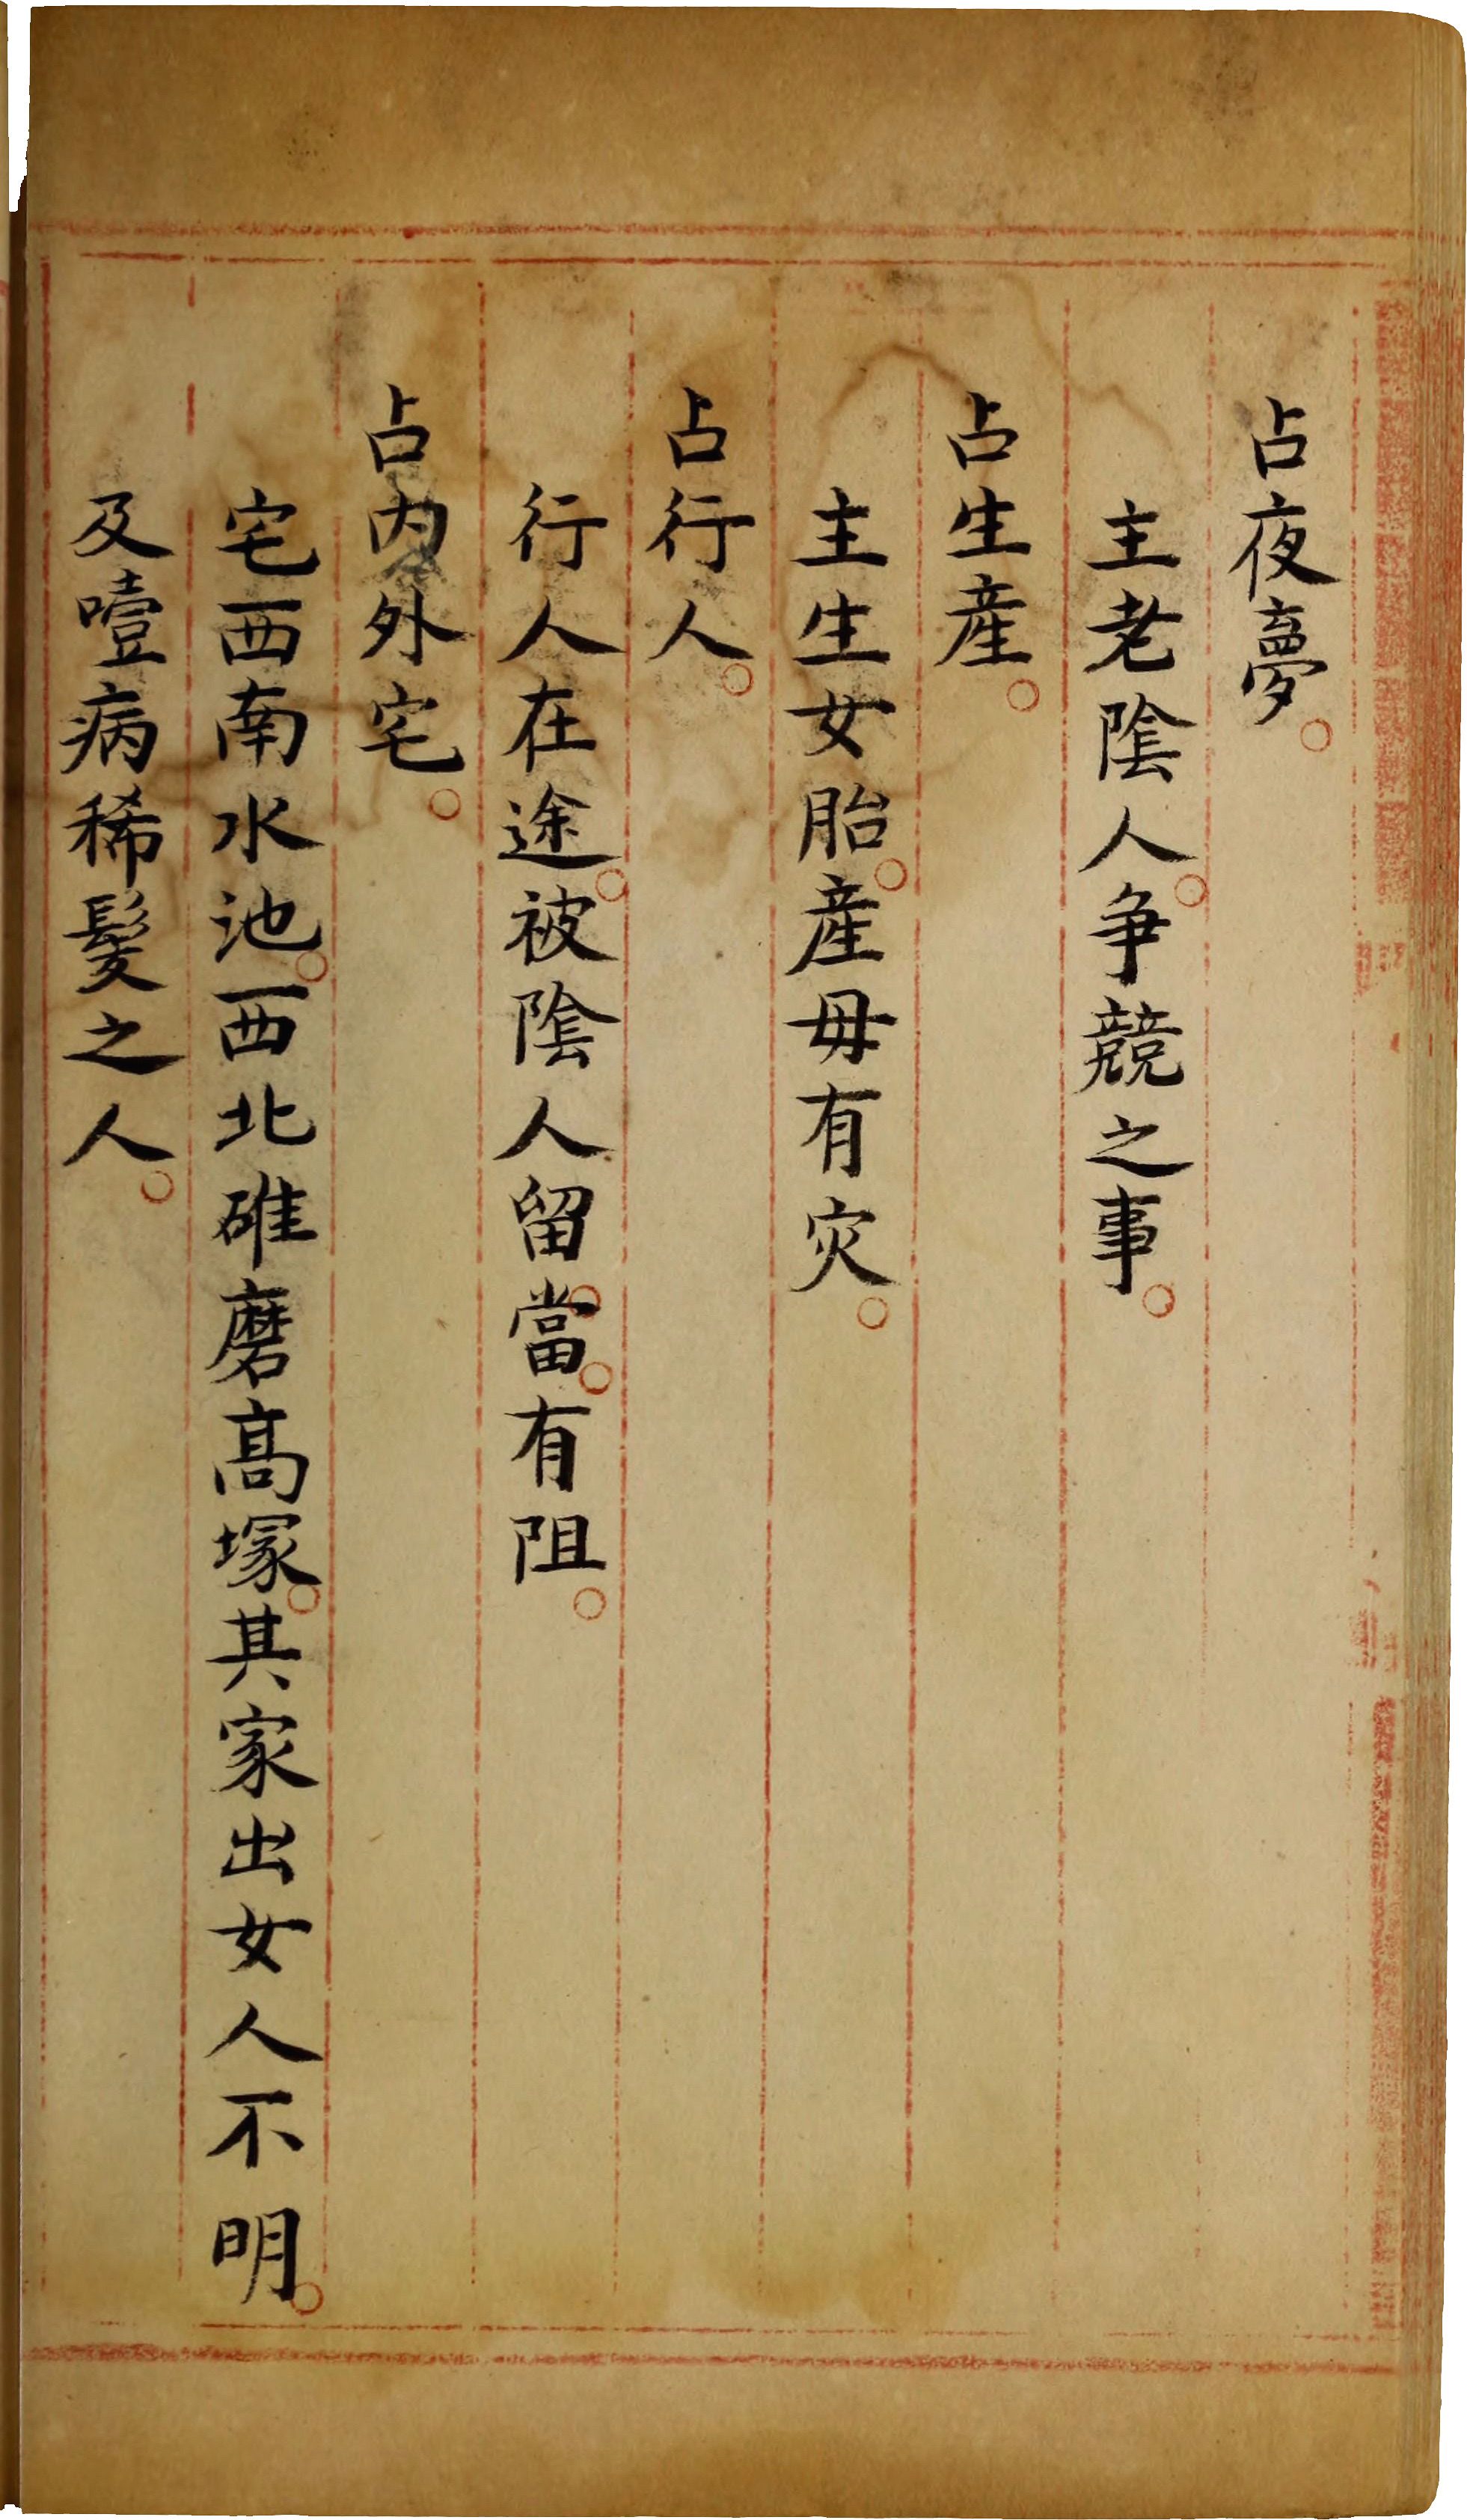 占夜夢。
主老陰人。争競之事。
占生産。
主生女胎。産母有灾。
占行人。
行人在途。被陰人留。當。有阻。
占内外宅。
宅西南水池。西北碓磨高塚。其家出女人不明。
及噎病稀髮之人。